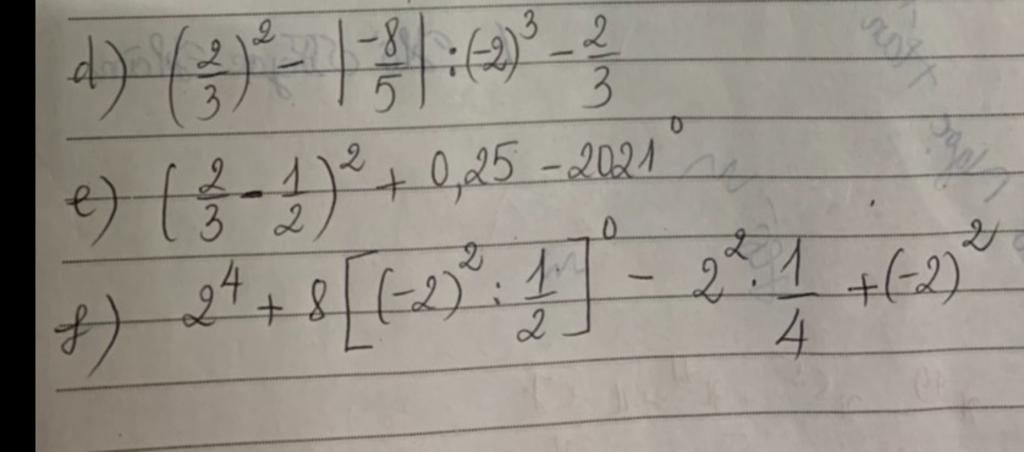 d) (2/3)² - |-8/5| : (-2)³ - 2/3
e) (2/3 - 1/2)² + 0,25 - 2021⁰
f) 2⁴ + 8[(-2)² : 1/2]⁰ - 2² · 1/4 + (-2)²